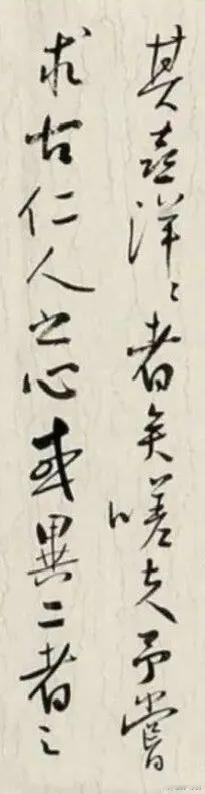 其喜洋々者矣嗟夫予嘗
求古仁人之心或異二者之